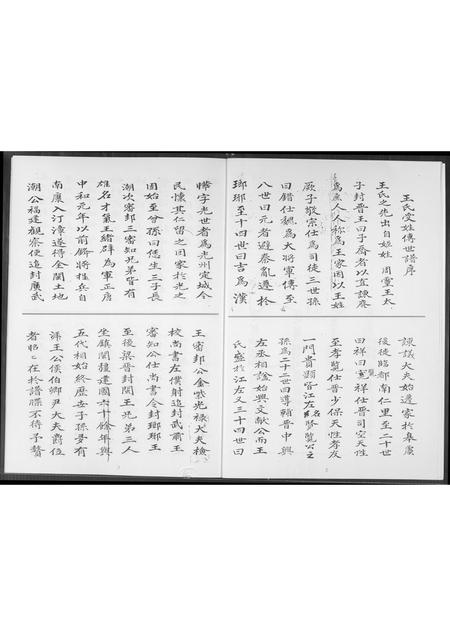 王氏受姓傳譜序
王氏之先出自姬姓 周靈王太
子封晉王曰子喬者以直諫廢
為庶人人稱為王家因以王姓
厥子敬宗仕為司徒三世孫
曰錯仕魏為大將軍傳至
八世曰元者避秦亂遷於
瑯琊至十四世曰吉為漢
諫議大夫始遷家於皋虞
後徙臨都南仁里至二十世
曰祥曰覽祥仕晉司空天性
至孝覽仕晉少保天性孝友
一門貴顯皆江左名賢覽公之
孫為二十二世曰導輔晉中興
左丞相諡始興文獻公而王
氏盛於江左又三十四世曰
曄字光世者為光州定城令
民懷其仁留之因家於光之
固始至曾孫曰恁生三子長
潮次審邽三審知兄弟皆有
雄名才氣王緒辟為軍正唐
中和元年以前鋒將提兵自
南康入汀漳遂得全閩土地
潮公福建觀察使追封廣武
王審邽公金紫光祿大夫檢
校尚書左僕射追封武肅王
審知公仕尚書令封瑯琊王
至後梁晉封閩王兄弟三人
坐鎮閩疆建國六十餘年與
五代相始終歷世子孫景有
王公侯伯卿尹大夫爵位
者昭〻在於譜牒不待予贅